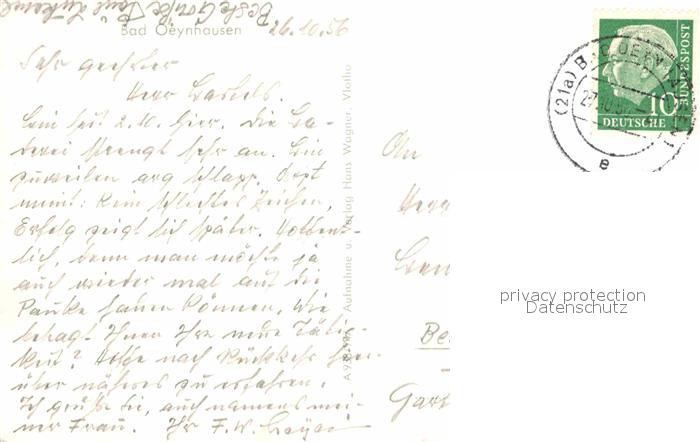 Beste Grüße
Bad Oeynhausen
26.10.56
Sehr geehrter
Herr Bartels.
Bin seit 2.10. hier. Die Ba-
derei strengt sehr an. Bin
zuweilen arg schlapp. Arzt
meint: kein schlechtes Zeichen,
Erfolg zeigt sich später. Hoffent-
lich, denn man möchte ja
auch wieder mal auf die
Pauke hauen können. Wie
behagt Ihnen Ihre neue Tätig-
keit? Hoffe nach Rückkehr hier-
über näheres zu erfahren.
Ich grüße Sie, auch namens mei-
ner Frau. Ihr F. W.
Aufnahme u. Verlag Hans Wagner, Vlotho
An
Herr
Be
Gart
(21a) BAD OEYNHAUSEN
27.10.56
e
10
DEUTSCHE
BUNDESPOST
privacy protection
Datenschutz